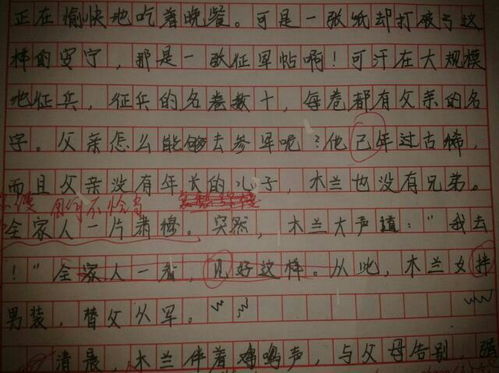 正在愉快地吃着晚餐。可是一张纸却打破了这
样的安宁，那是一张征军帖啊！可汗在大规模
地征兵，征兵的名卷数十，每卷都有父亲的名
字。父亲怎么能够去参军呢？他己年过古稀，
而且父亲没有年长的儿子，木兰也没有兄弟。
用词不恰当
全家人一片肃穆。突然，木兰大声道：“我去
！”全家人一看，只好这样。从此，木兰女扮
男装，替父从军。
清晨，木兰伴着鸡鸣声，与父母告别，强